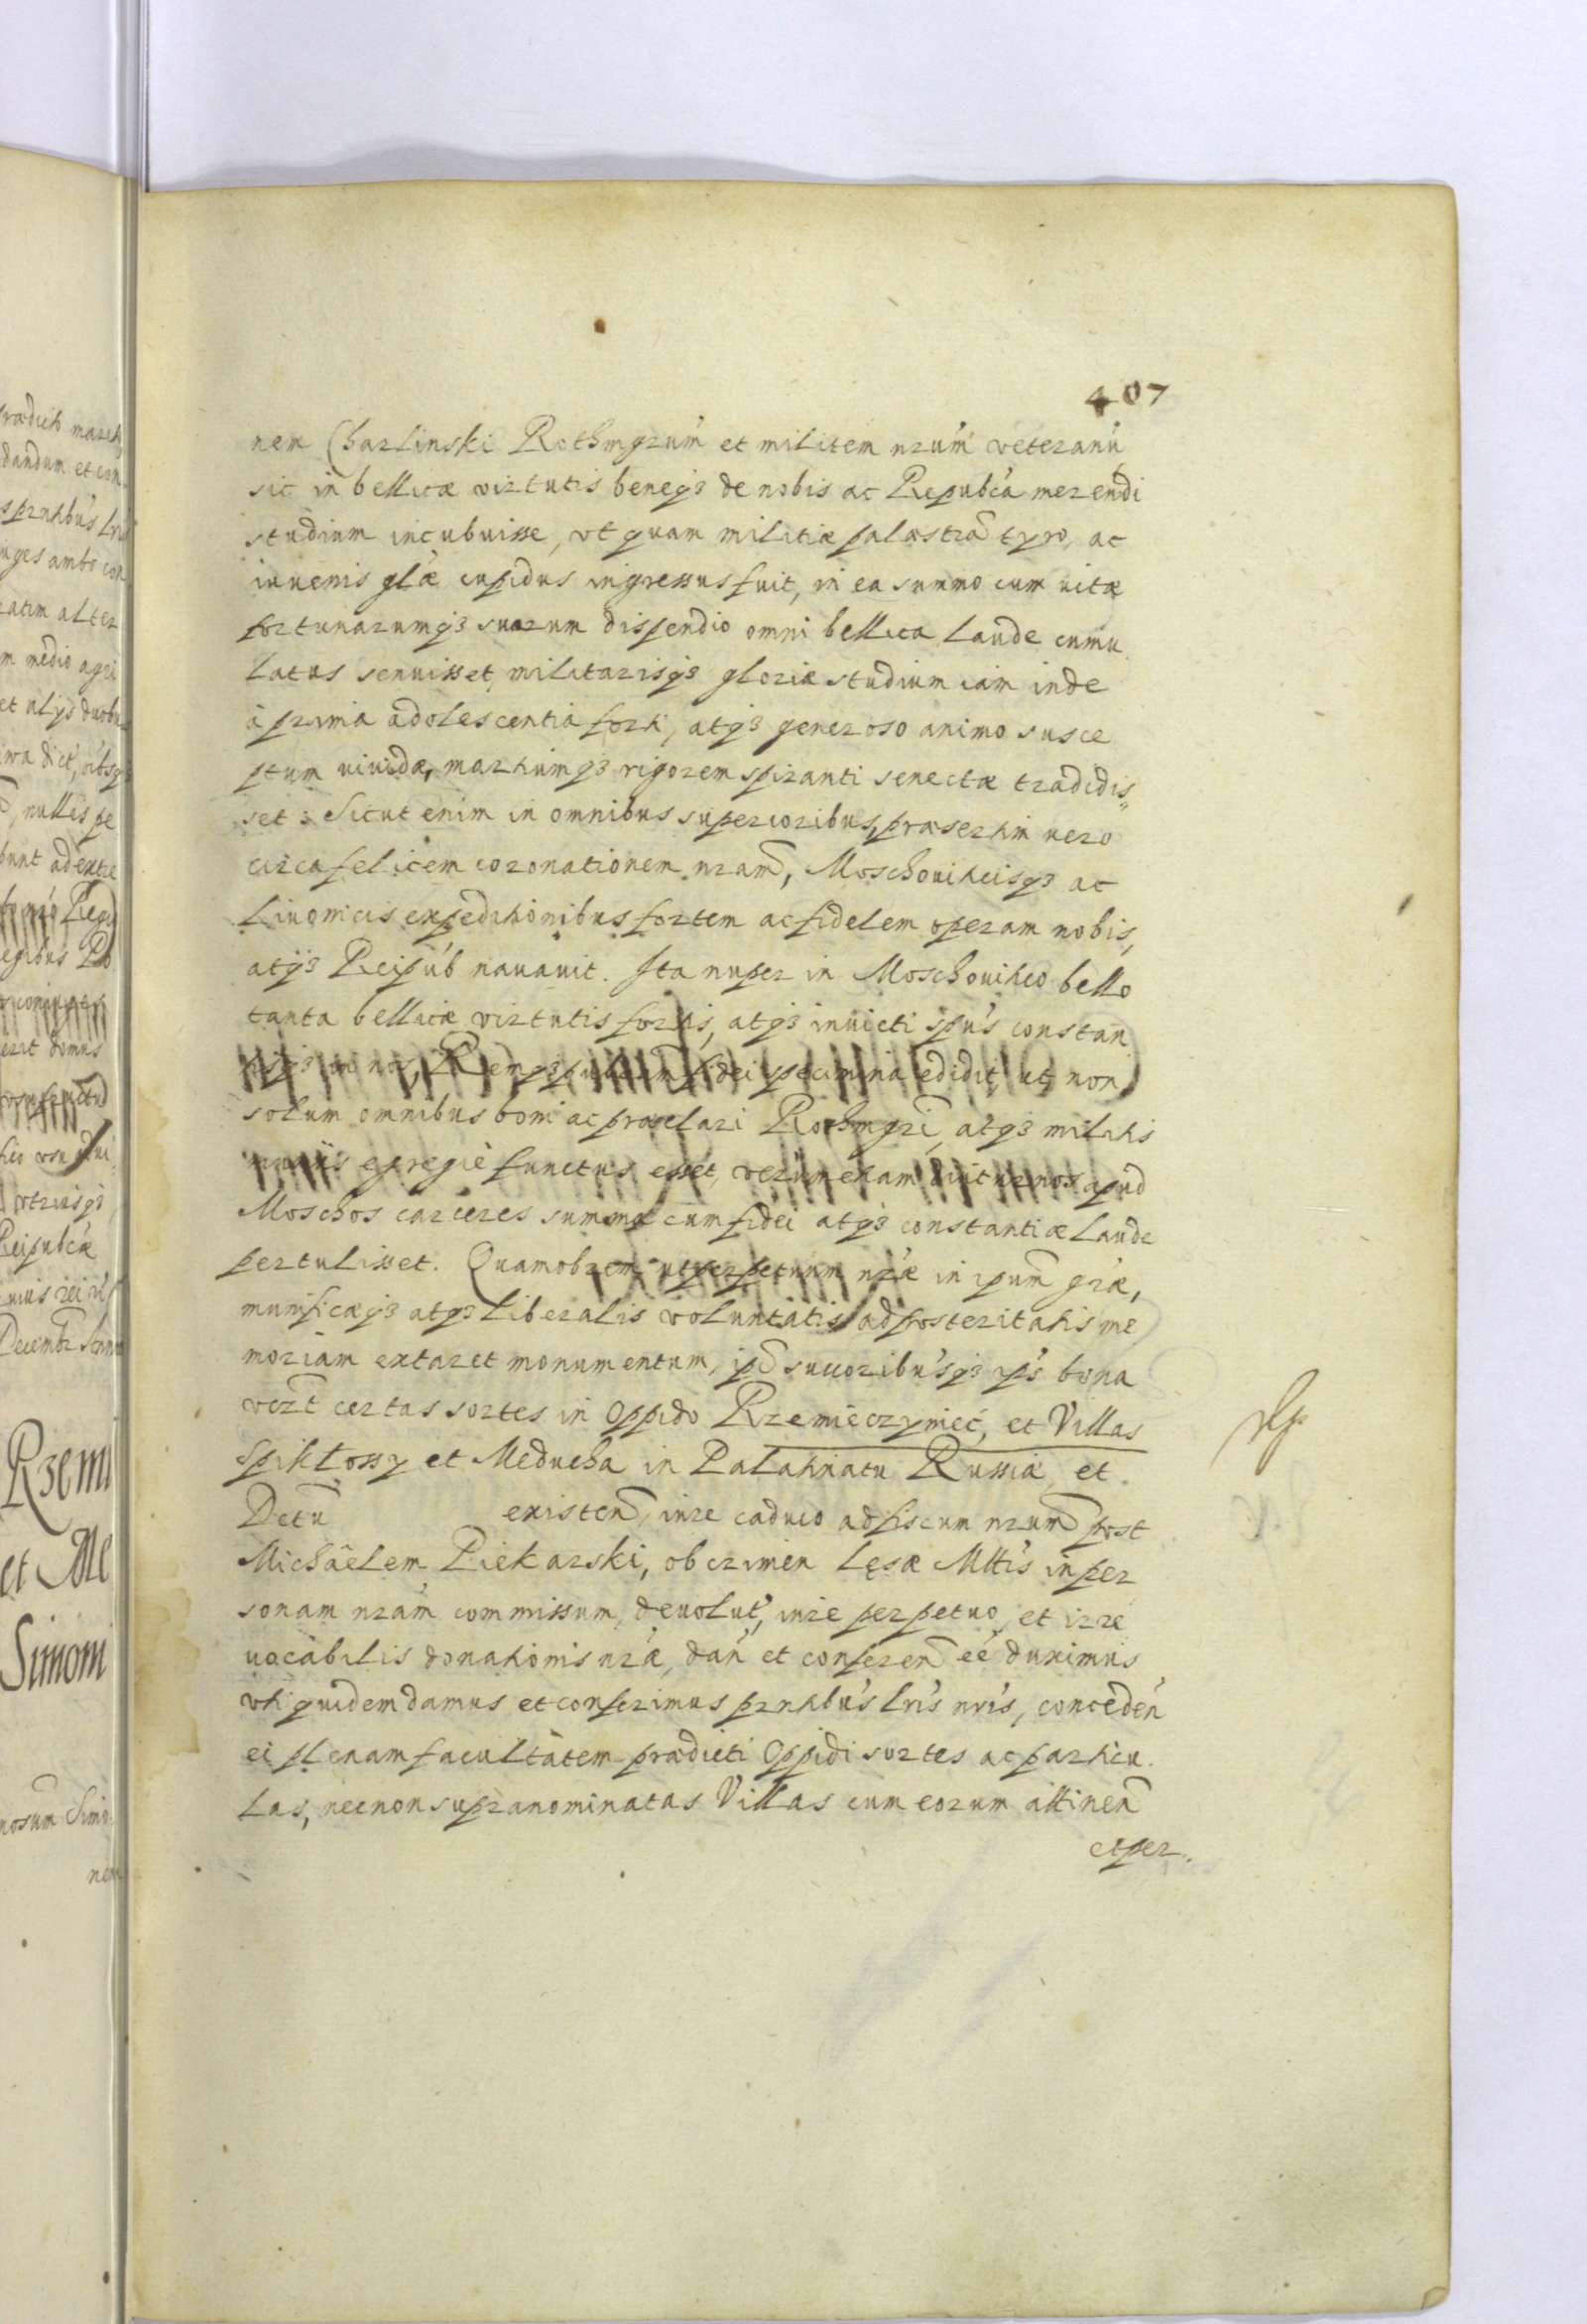 407
nem Charlinski Rothmgrum et militem nrum veteranu
sic in bellicæ virtutis beneq3 de nobis ac Repubca merendi
studium incubuisse, vt quam militiæ palæstram tyro, ac
iuuenis glæ cupidus ingressus fuit, in ea summo cum vitæ
fortunarumq3 suarum dispendio omni bellica laude cumu
latus senuisset, militarisq3 gloriæ studium iam inde
à prima adolescentia forti, atq3 generoso animo susce
ptum viuidæ, martiumq3 rigorem spiranti senectæ tradidis„
set: Sicut enim in omnibus superioribus, præsertim vero
circa felicem coronationem nram, Moschouiticisq3 ac
Liuonicis expeditionibus fortem ac fidelem operam nobis,
atq3 Reipub nauauit. Ita nuper in Moschouitico bello
tanta bellicæ virtutis fortis, atq3 inuicti spus constan
fidei specimina edidit, ut non
solum omnibus boni ac præclari Rothmgri, atq3 militis
egregiè functus esset, verum etiam diuturnos apud
Moschos carceres summa cum fidei atq3 constantiæ laude
pertulisset. Quamobrem ut perpetuum nræ in ipsum græ,
munificæq3 atq3 liberalis voluntatis ad posteritatis me
moriam extaret monumentum, ip succoribusq3 ips bona
vert certas sortes in Oppido Rzemieczyniec, et Villas
Spiklossy et Meducha in Palatinatu Russiæ, et
Dctu existen, iure caduco ad fiscum nrum post
Michäelem Piekarski, ob crimen Lęsæ Mttis in per
sonam nram commissum, deuolut, iure perpetuo, et irre
uocabilis donationis nræ, dan et conferen eé duximus
vti quidem damus et conferimus prntibus lris nris, conceden
ei plenam facultatem prædicti Oppidi sortes ac particu
las, necnon supranominatas Villas cum eorum attinen
et per.